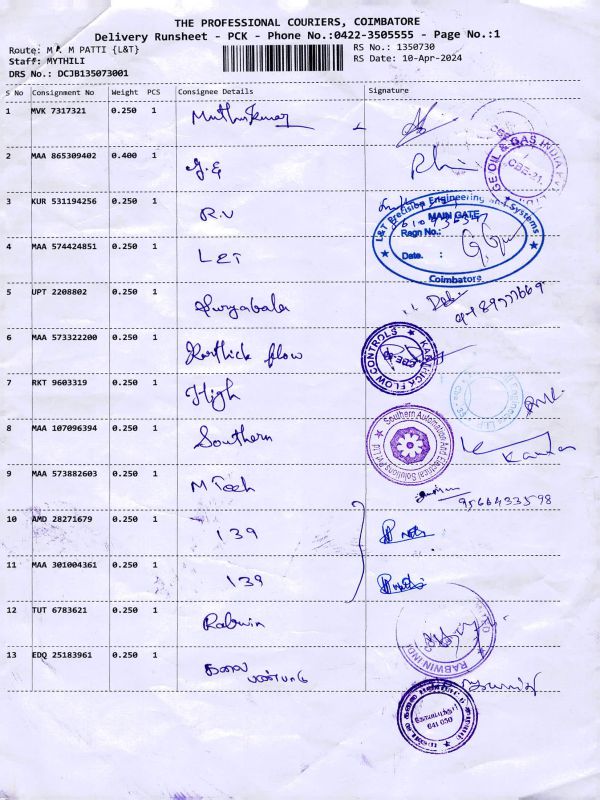 THE PROFESSIONAL COURIERS, COIMBATORE
Delivery Runsheet - PCK - Phone No.:0422-3505555 - Page No.:1
Route: M K M PATTI {L&T}
RS No.: 1350730
Staff: MYTHILI
RS Date: 10-Apr-2024
DRS No.: DCJB135073001
S No Consignment No Weight PCS Consignee Details Signature
1 MVK 7317321 0.250 1 Muthukumar
2 MAA 865309402 0.400 1 G.E
GE OIL & GAS INDIA PVT
CBE-21.
3 KUR 531194256 0.250 1 R.V
L&T Precision Engineering and Systems
MAIN GATE
Regn No.:
Date. :
Coimbatore
4 MAA 574424851 0.250 1 L&T
5 UPT 2208802 0.250 1 Suryabala
6 MAA 573322200 0.250 1 Karthick flow
KARTHICK FLOW CONTROLS
7 RKT 9603319 0.250 1 High
8 MAA 107096394 0.250 1 Southern
Southern Automation And Electrical Solutions Pvt Ltd
9 MAA 573882603 0.250 1 M Tech
9566433598
10 AMD 28271679 0.250 1 139
11 MAA 301004361 0.250 1 139
12 TUT 6783621 0.250 1 Rabwin
RABWIN INDU
13 EDQ 25183961 0.250 1 கலை
பண்பாடு
641 050